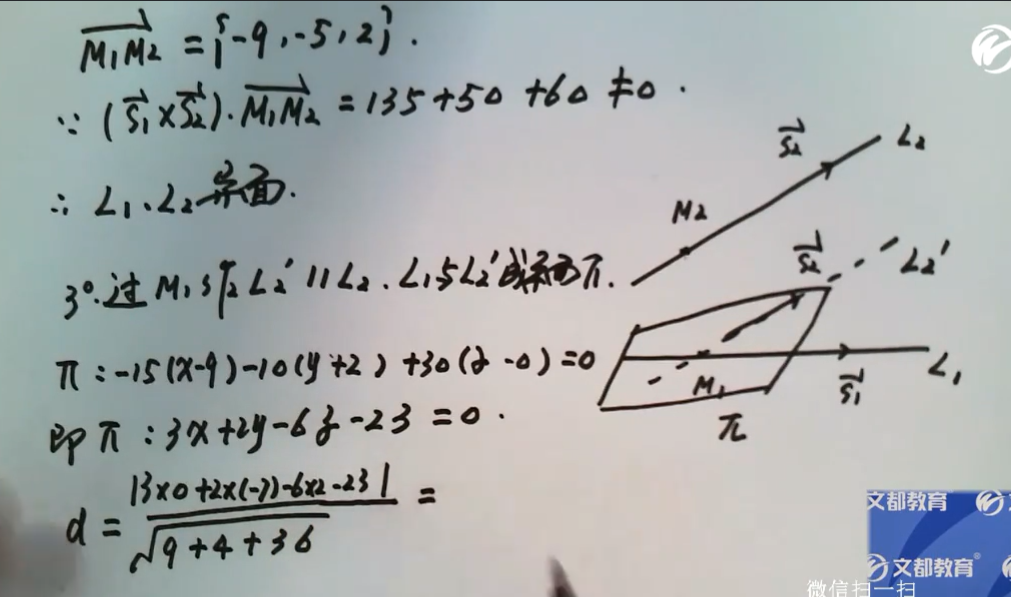 M₁M₂ = {-9, -5, 2}.
∵ (S₁×S₂)·M₁M₂ = 135+50+60 ≠0.
∴ L₁、L₂异面.
3°.过M₁ L₂′∥L₂. L₁与L₂′成平面π.
π:-15(x-9)-10(y+2)+30(z-0)=0
即π:3x+2y-6z-23=0.
d = |3×0+2×(-7)-6×2-23| / √9+4+36 =
S₂ L₂
M₂
S₂ L₂′
M₁ S₁ L₁
π
文都教育
文都教育®
微信扫一扫